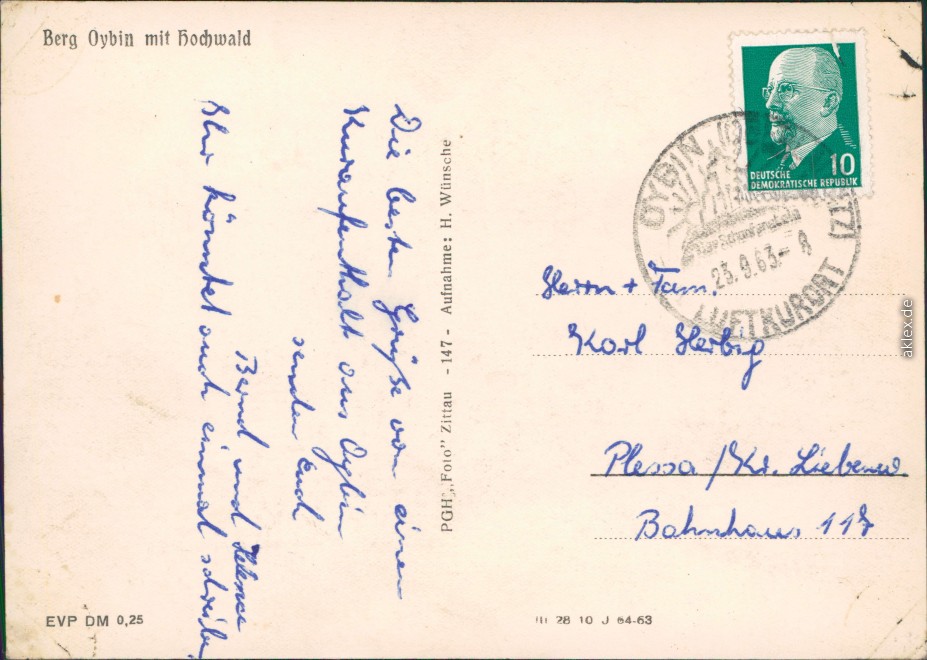 Berg Oybin mit Hochwald
Die besten Grüße von einem
Kuraufenthalt aus Oybin
senden Euch
Bernd und Helene
Ihr könntet auch einmal schreiben
PGH „Foto” Zittau - 147 - Aufnahme: H. Wünsche
DEUTSCHE
DEMOKRATISCHE REPUBLIK
10
OYBIN
23.9.63 - 8
LUFTKURORT
Herrn + Fam.
Karl Herbig
Plessa / Kr. Liebenw.
Bahnhaus 117
EVP DM 0,25
28 10 J 64-63
aklex.de